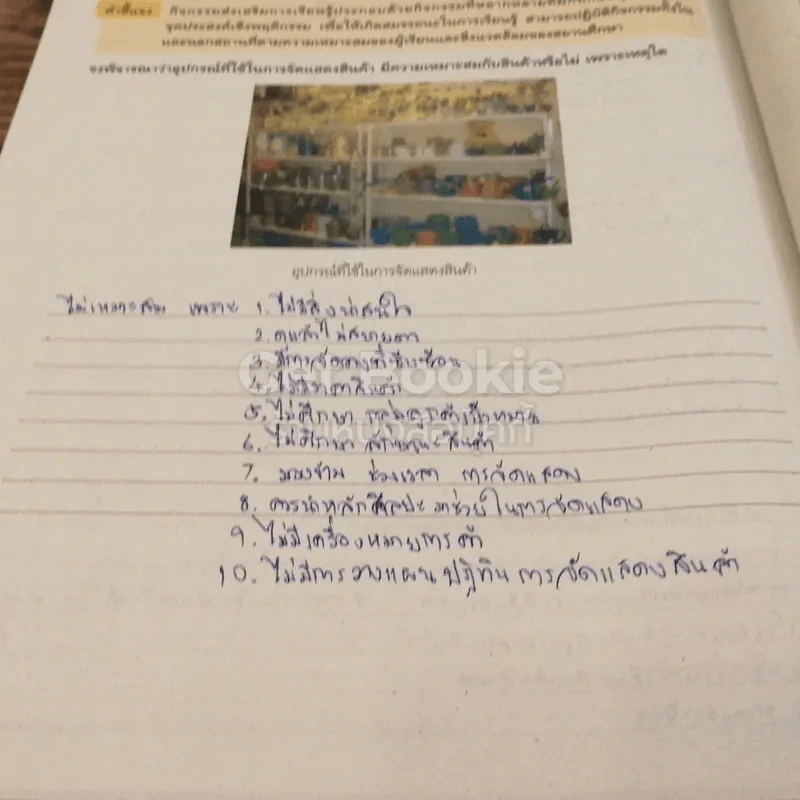 คำชี้แจง กิจกรรมส่งเสริมการเรียนรู้ประกอบด้วยกิจกรรมที่หลากหลาย
จุดประสงค์เชิงพฤติกรรม เพื่อให้เกิดสมรรถนะในการเรียนรู้ สามารถปฏิบัติกิจกรรมทั้งใน
และนอกสถานที่ตามความเหมาะสมของผู้เรียนและสิ่งแวดล้อมของสถานศึกษา
จงพิจารณาว่าอุปกรณ์ที่ใช้ในการจัดแสดงสินค้า มีความเหมาะสมกับสินค้าหรือไม่ เพราะเหตุใด
อุปกรณ์ที่ใช้ในการจัดแสดงสินค้า
ไม่เหมาะสม เพราะ 1. ไม่มีสิ่งน่าสนใจ
2. ดูแล้วไม่สบายตา
3. มีการจัดวางที่ซับซ้อน
4. ไม่มีราคาสินค้า
5. ไม่ศึกษา กลุ่มลูกค้าเป้าหมาย
6. ไม่ศึกษา ลักษณะสินค้า
7. มองข้าม ช่วงเวลา การจัดแสดง
8. การนำหลักศิลปะมาช่วยในการจัดแสดง
9. ไม่มีเครื่องหมายการค้า
10. ไม่มีการวางแผนปฏิทินการจัดแสดงสินค้า
Get Bookie